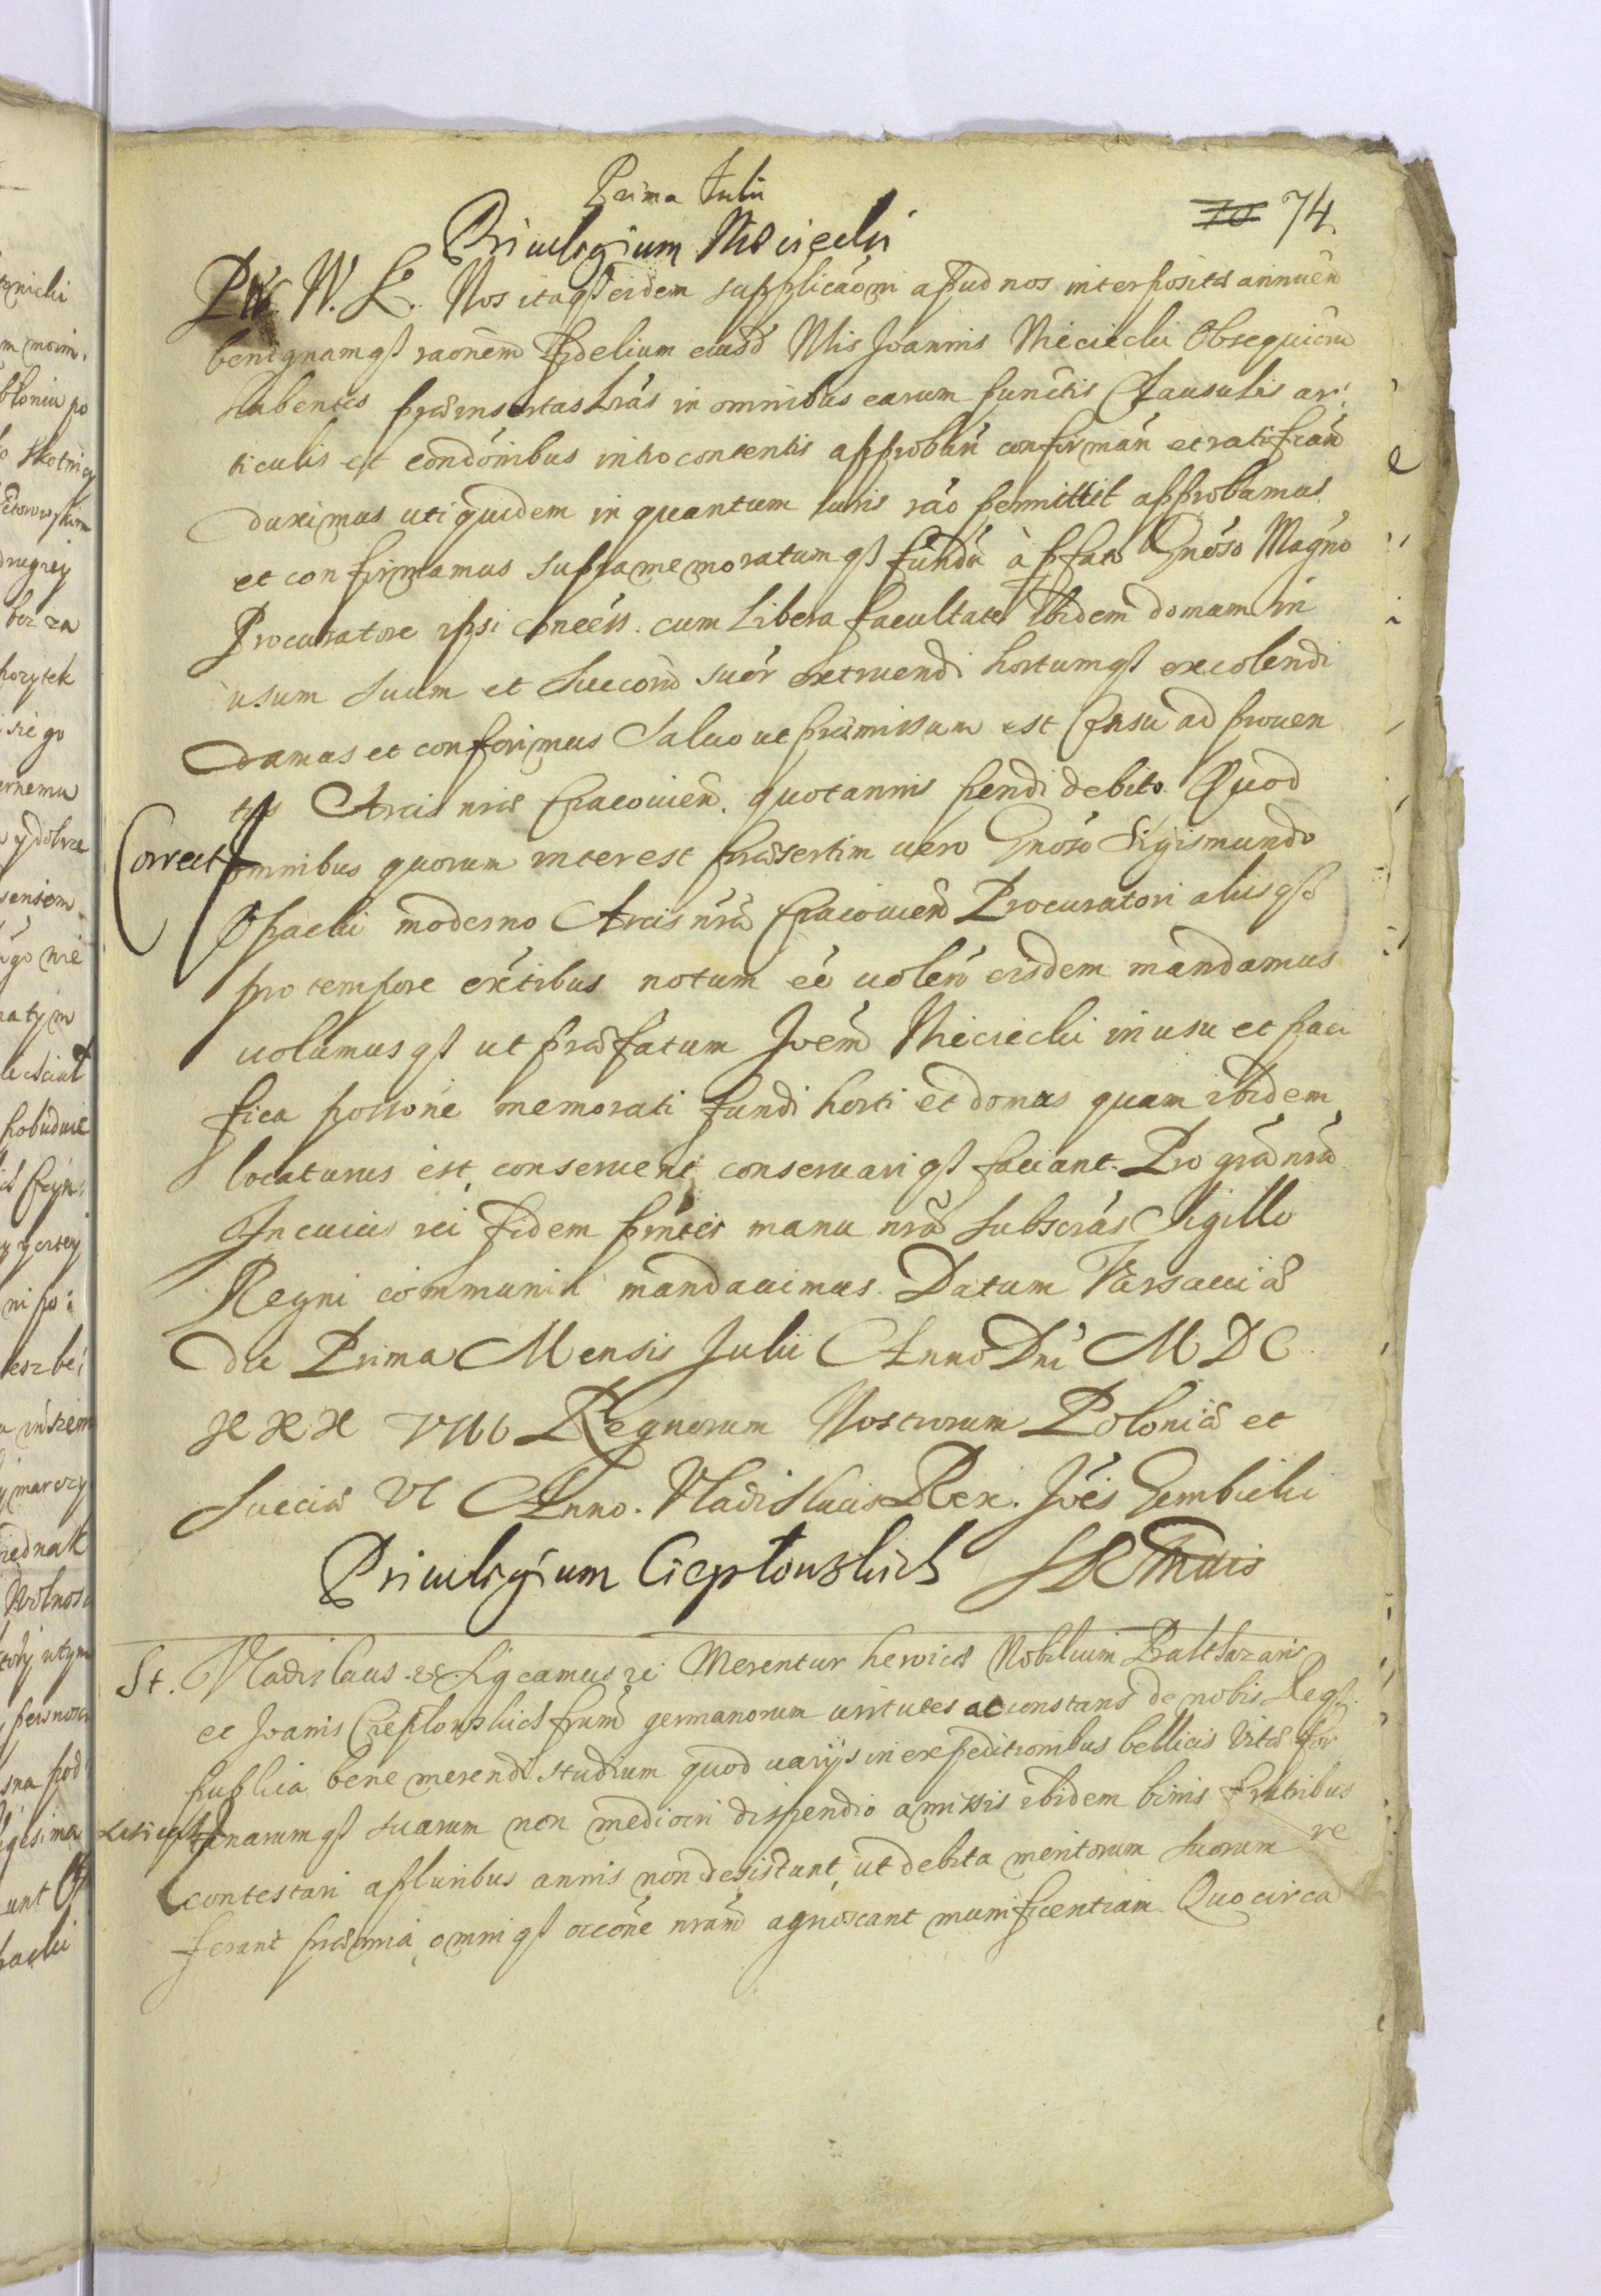 Prima Julii
70 74
Priuilegium Mięciecki
PW. W. L. Nos itaqȝ eidem supplicaōni apud nos interpositæ annuēn
benignamqȝ raōnem Fidelium eiusd Nlis Joannis Mieciecki Obsequiorū
habentes præinsertas Lrás in omnibus earum punctis Clausulis ar:
ticulis et condónibus intro contentis approbán confirmán et ratificán
duximus uti quidem in quantum Iuris ráo permittit approbamus
et confirmamus Supramemoratumqȝ fundū à pfato Gnóso Magno
Procuratore ipsi concéss. cum Libera facultate Ibidem domum in
usum suum et Succorū suór extruendi hortumqȝ excolendi
damus et conferimus Saluo ut præmissum est Censu ad prouen
tus Arcis nrǽ Cracouień. quotannis pendi debito. Quod
Correct omnibus quorum interest præsertim uero Gnóso Sigismundo
Opacki moderno Arcis nrǽ Cracouień Procuratori aliisqȝ
pro tempore exῑtibus notum eē uolén eisdem mandamus
uolumusqȝ ut præfatum Joém Mieciecki in usu et paci
fica possóne memorati fundi horti et domus quam ibidem
locaturus est, conseruent conseruariqȝ faciant. Pro grā nrā
In cuius rei fidem pntes manu nrā Subscrás Sigillo
Regni communiri mandauimus. Datum Varsauiæ
die Prima Mensis Julii Anno Dni MDC
XXXVIII Regnorum Nostrorum Poloniæ et
Sueciæ VI Anno. Vladislaus Rex. Joés Gembicki
Priuilegium Ciepłonskich
St. Vladislaus &. Sig eamus rei Merentur heroicæ Nobilium Balthazaris
et Joanis Ciepłonskich frūm germanorum uirtutes ac constans de nobis Reqȝ
publica bene merendi studium quod uarijs in expeditionibus bellicis Vitæ for
tunarumqȝ suarum non mediocri dispendio amissis ibidem binis fratribus
contestari a pluribus annis non desistunt, ut debita meritorum suorum re
ferant præmia, omniqȝ occóne nrām agnoscant munificentiam. Quocirca